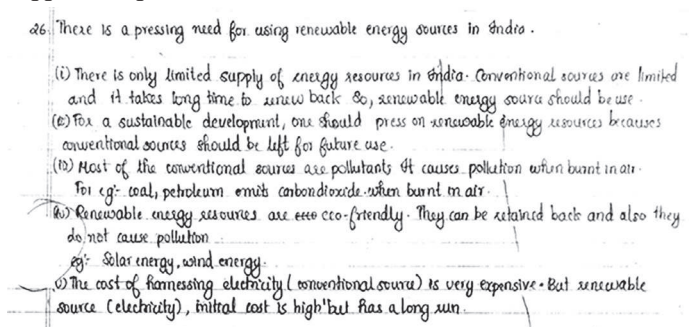 26. There is a pressing need for using renewable energy sources in India.
(i) There is only limited supply of energy resources in India. Conventional sources are limited
and it takes long time to renew back So, renewable energy source should be use.
(ii) For a sustainable development, one should press on renewable energy resources becauses
conventional sources should be left for future use.
(iii) Most of the conventional sources are pollutants It causes pollution when burnt in air.
For eg:- coal, petroleum emits carbondioxide when burnt in air.
(iv) Renewable energy resources are eco-friendly. They can be retained back and also they
do not cause pollution
eg:- Solar energy, wind energy.
v) The cost of harnessing electricity (conventional source) is very expensive. But renewable
source (electricity), initial cost is high but has a long run.